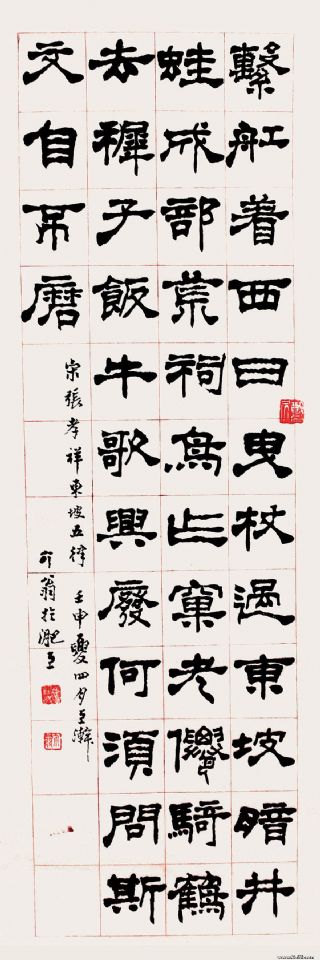 繫舡着西日曳杖過東坡暗井
蛙成部荒祠鳥亡窠老僊騎鶴
去穉子飯牛歌興廢何須問斯
文自不磨
宋張孝祥東坡五律 壬申夏四月澣
翁於